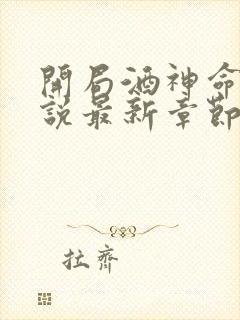 開局酒神命
說最新章節
拉齊